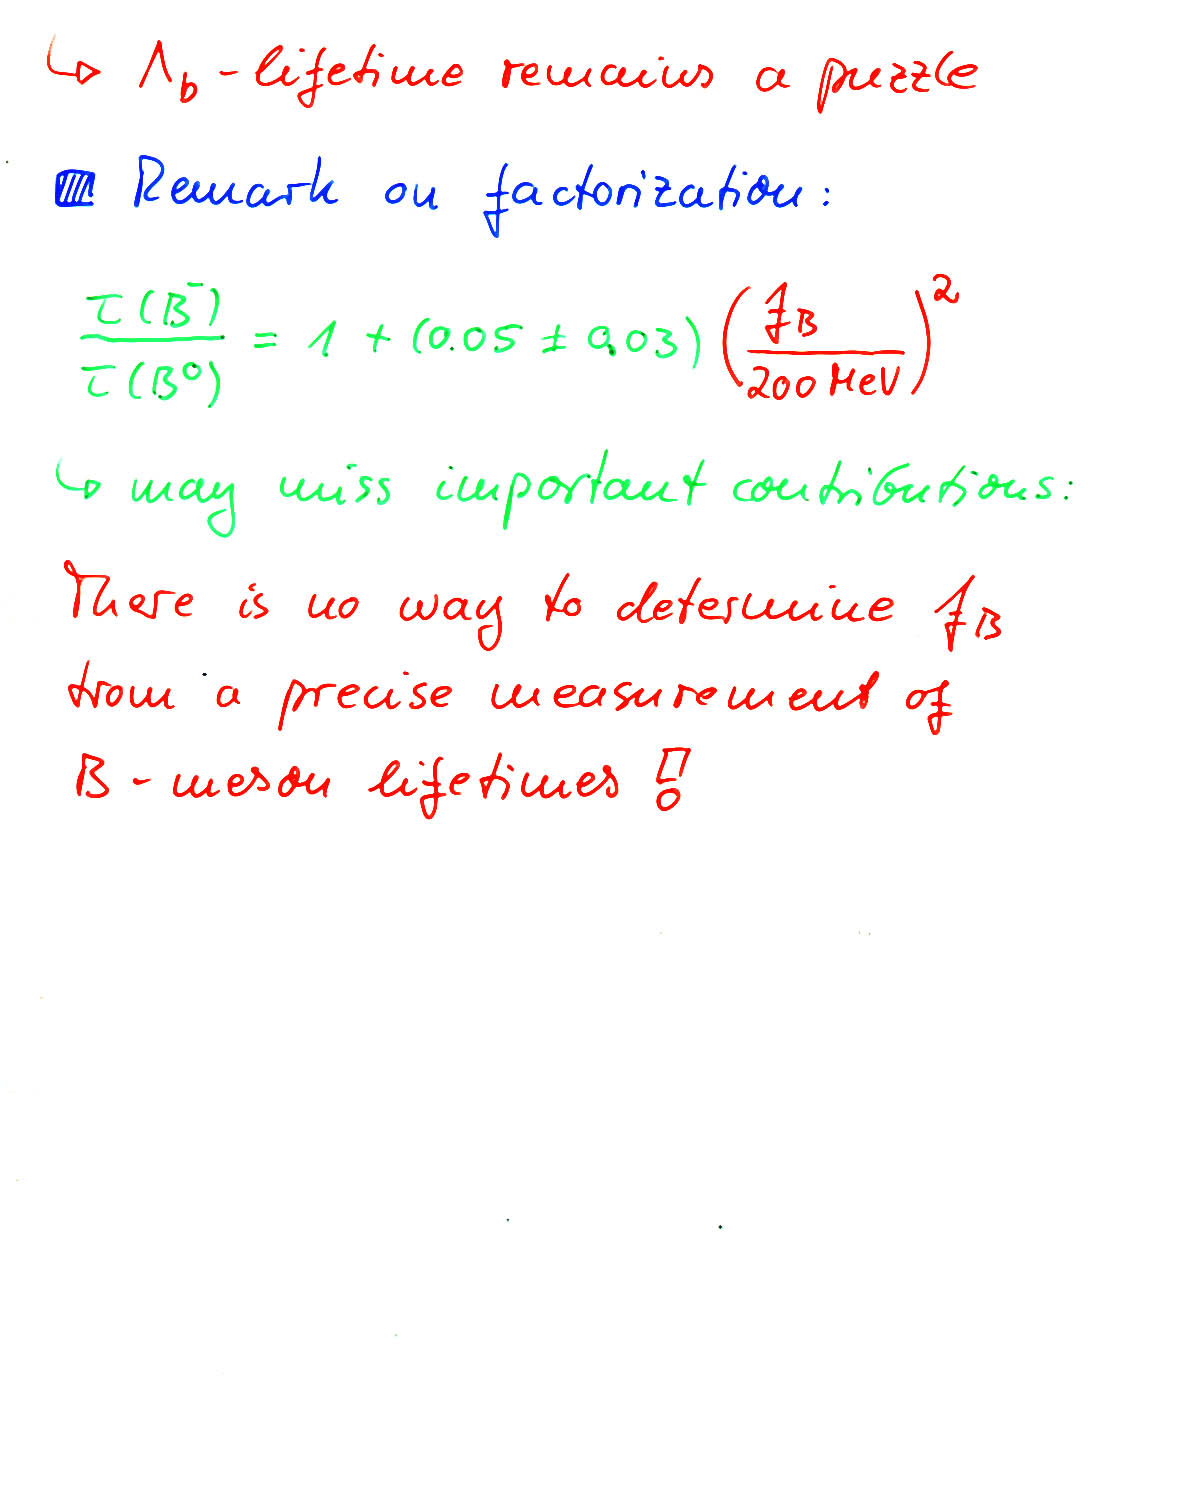 ↳ Λ_b - lifetime remains a puzzle
▨ Remark on factorization:
τ(B⁻)/τ(B⁰) = 1 + (0.05 ± 0.03) (f_B/200 MeV)²
↳ may miss important contributions:
There is no way to determine f_B
from a precise measurement of
B - meson lifetimes !